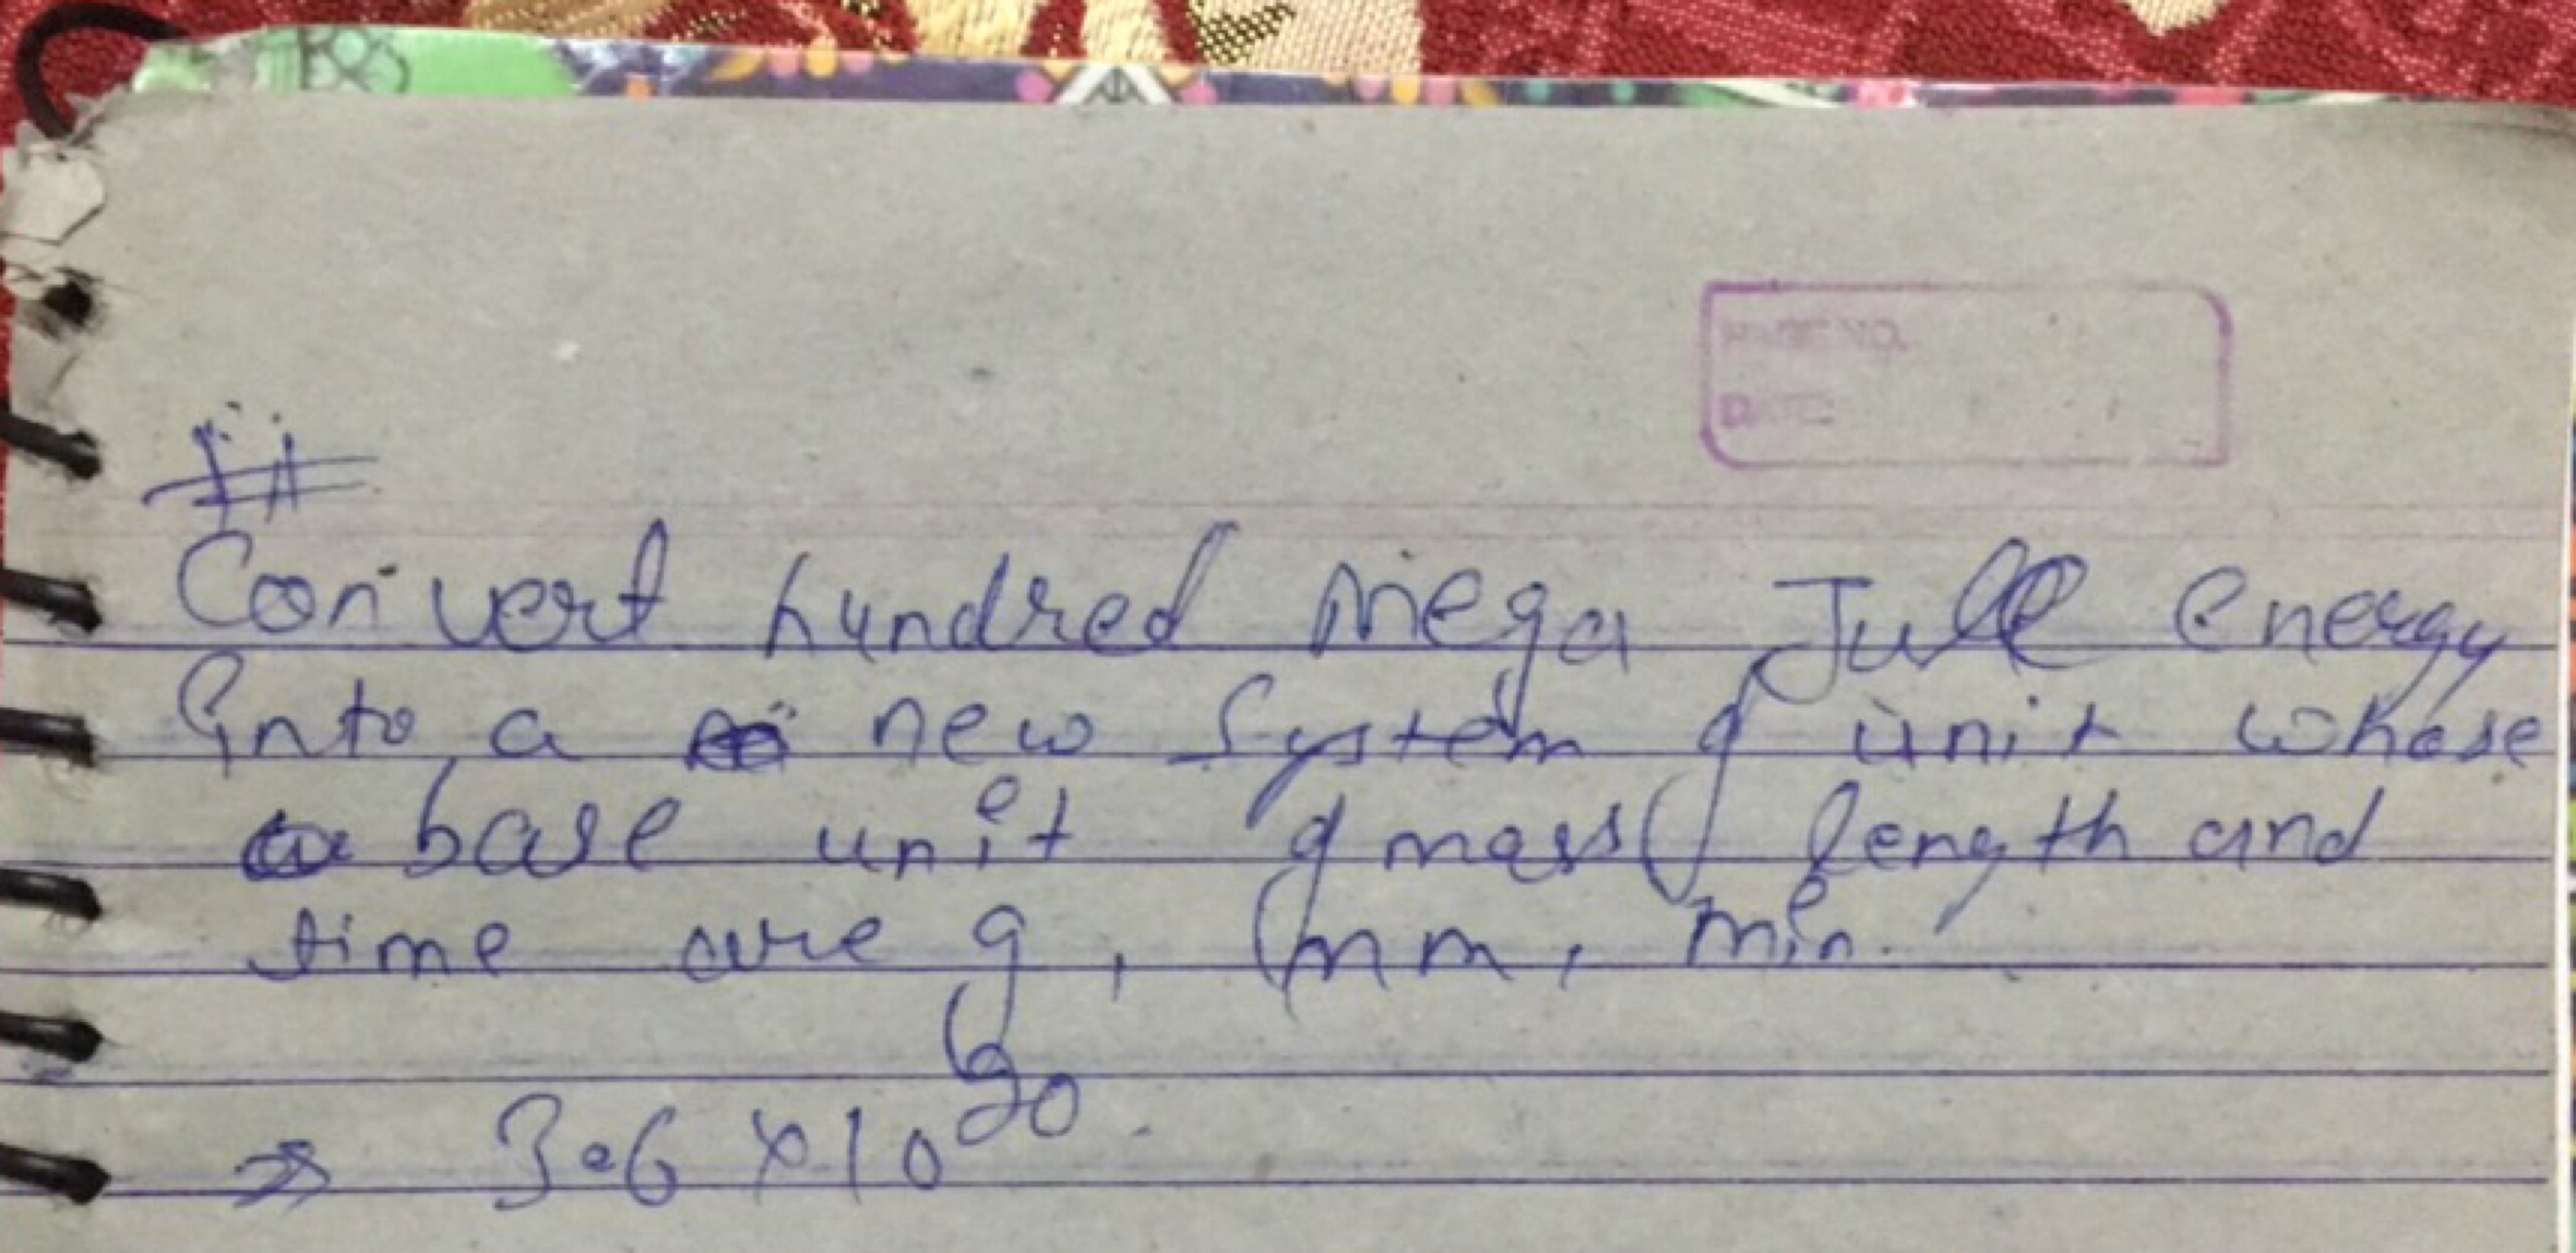 #
Convert hundred Mega Jule energy
into a new System of unit whose
base unit of mass length and
time are g, mm, min.
⇒ 3.6 × 10²⁰.
PAGE NO.
DATE: